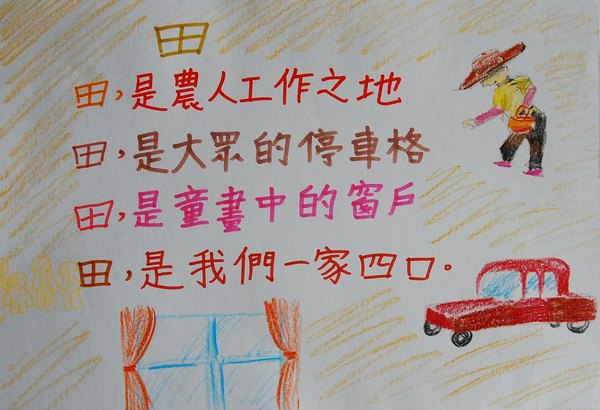 田
田，是農人工作之地
田，是大眾的停車格
田，是童畫中的窗戶
田，是我們一家四口。